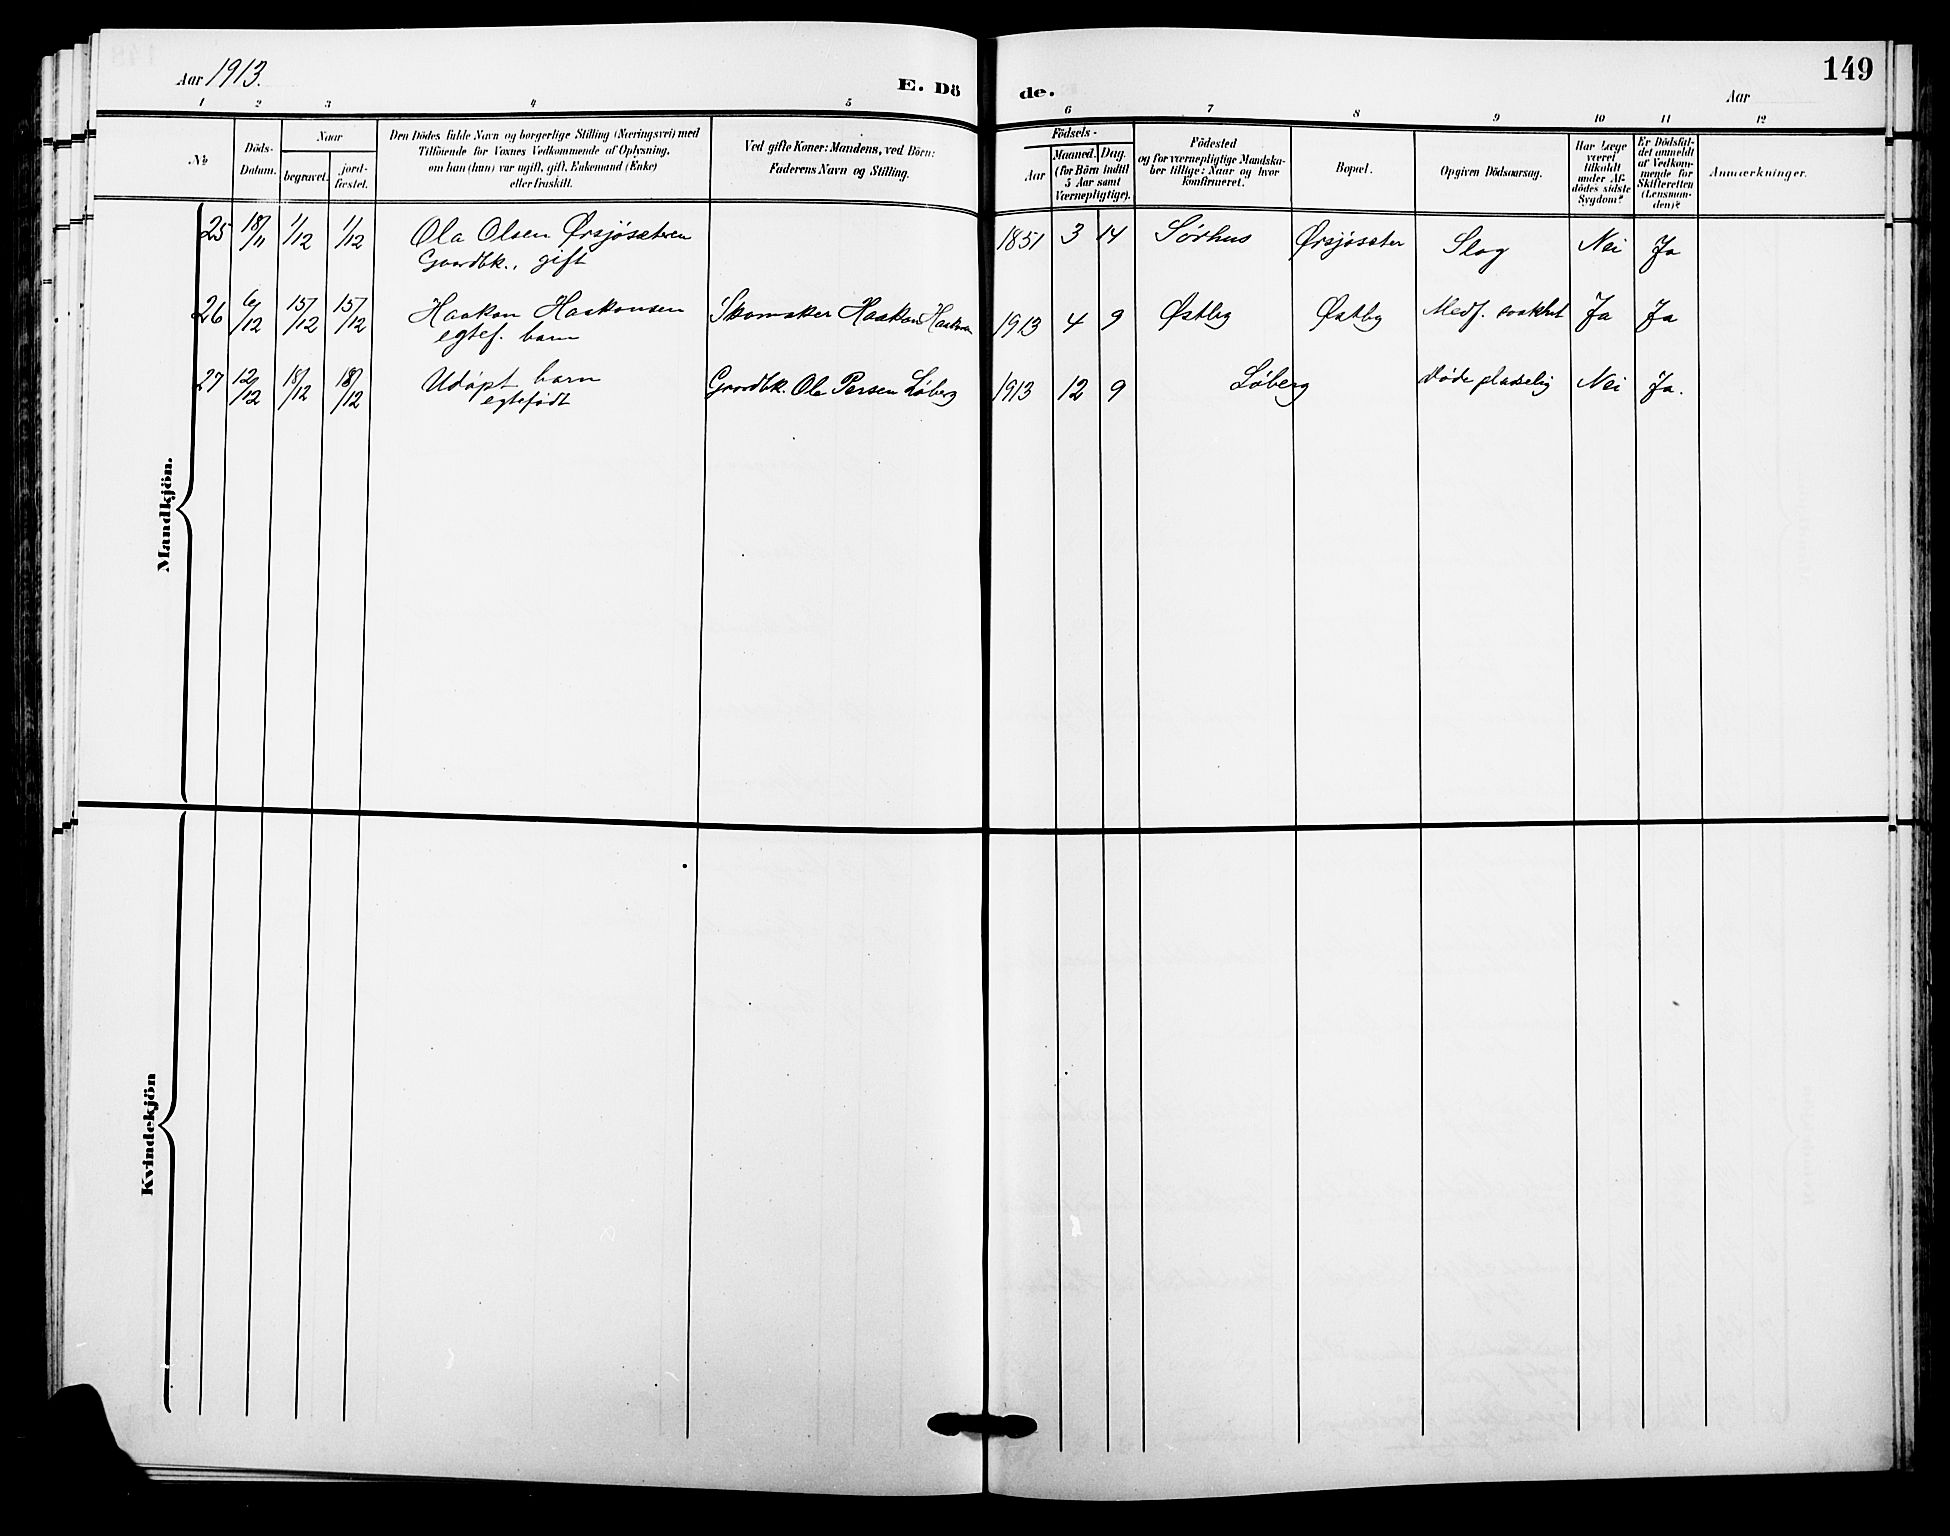 149
Aar 1913.
E. Dö
de.
Aar
1 2 3 4 5 6 7 8 9 10 11 12
No
Döds-
Datum.
Naar
begravet.
jord-
fæstet.
Den Dödes fulde Navn og borgerlige Stilling (Næringsvei) med
Tilföiende for Voxnes Vedkommende af Oplysning,
om han (hun) var ugift, gift, Enkemand (Enke)
eller fraskilt.
Ved gifte Koner: Mandens, ved Börn:
Faderens Navn og Stilling.
Födsels-
Aar
Maaned. Dag.
(for Börn indtil
5 Aar samt
Værnepligtige).
Födested
og for værnepligtige Mandska-
ber tillige: Naar og hvor
konfirmeret.
Bopæl.
Opgiven Dödsaarsag.
Har Læge
været
tilkaldt
under Af-
dödes sidste
Sygdom?
Er Dödsfal-
det anmeldt
af Vedkom-
mende for
Skifteretten
(Lensman-
den)?
Anmærkninger.
Mandkjön.
25 18/11 1/12 1/12 Ola Olsen Ørsjösæteren 1851 3 14 Sörhus Ørsjösæter Slag Nei Ja
Gaardbk., gift
26 6/12 15/12 15/12 Haakon Haakonsen Skomaker Haakon Haakonsen 1913 4 9 Østby Østby Medf. svakhet Ja Ja
egtef. barn
27 12/12 18/12 18/12 Udöpt barn Gaardbk. Ola Persen Löberg 1913 12 9 Löberg Döde pludselig Nei Ja.
egtefödt
Kvindekjön